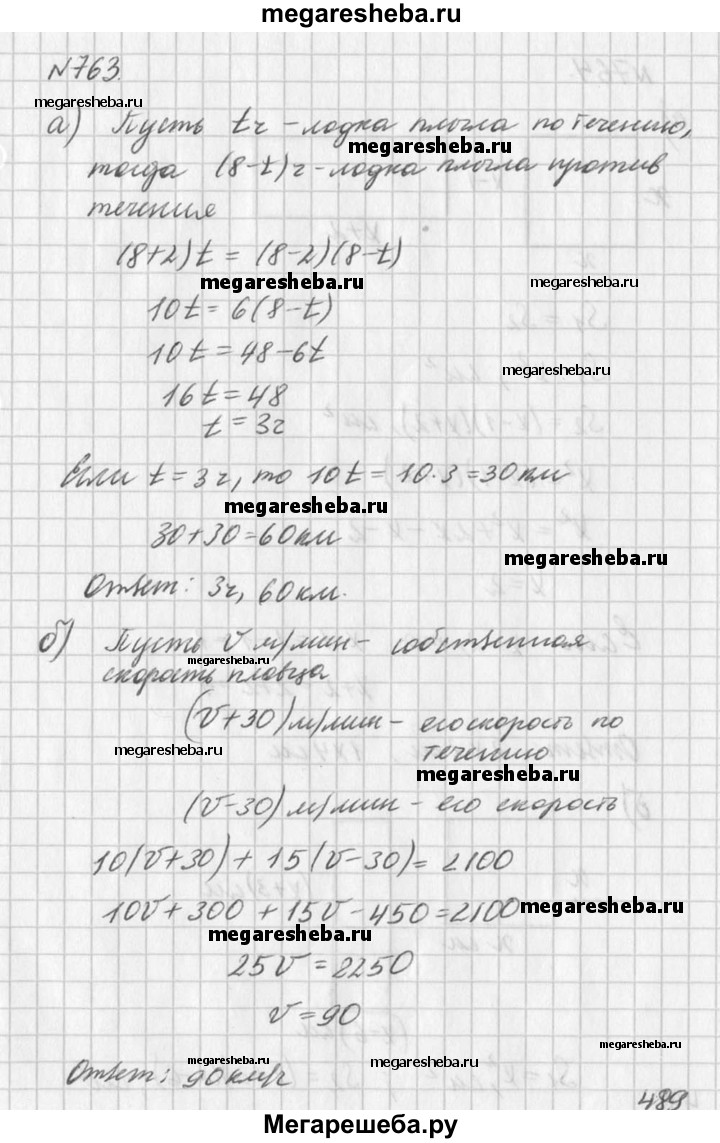 megaresheba.ru
№763.
megaresheba.ru
а) Пусть tч – лодка плыла по течению,
megaresheba.ru
тогда (8-t)ч – лодка плыла против
течения
(8+2)t = (8-2)(8-t)
megaresheba.ru megaresheba.ru
10t = 6(8-t)
10t = 48-6t
megaresheba.ru
16t = 48
t = 3ч
Если t = 3ч, то 10t = 10·3 = 30 км
megaresheba.ru
30+30=60км
megaresheba.ru
Ответ: 3ч, 60км.
б) Пусть v м/мин – собственная
megaresheba.ru
скорость пловца
(v+30) м/мин – его скорость по
megaresheba.ru течению
megaresheba.ru
(v-30) м/мин – его скорость
10(v+30) + 15(v-30) = 2100
10v+300 + 15v-450=2100 megaresheba.ru
megaresheba.ru
25v = 2250
v = 90
megaresheba.ru
megaresheba.ru megaresheba.ru
Ответ: 90км/ч
489
Мегарешеба.ру